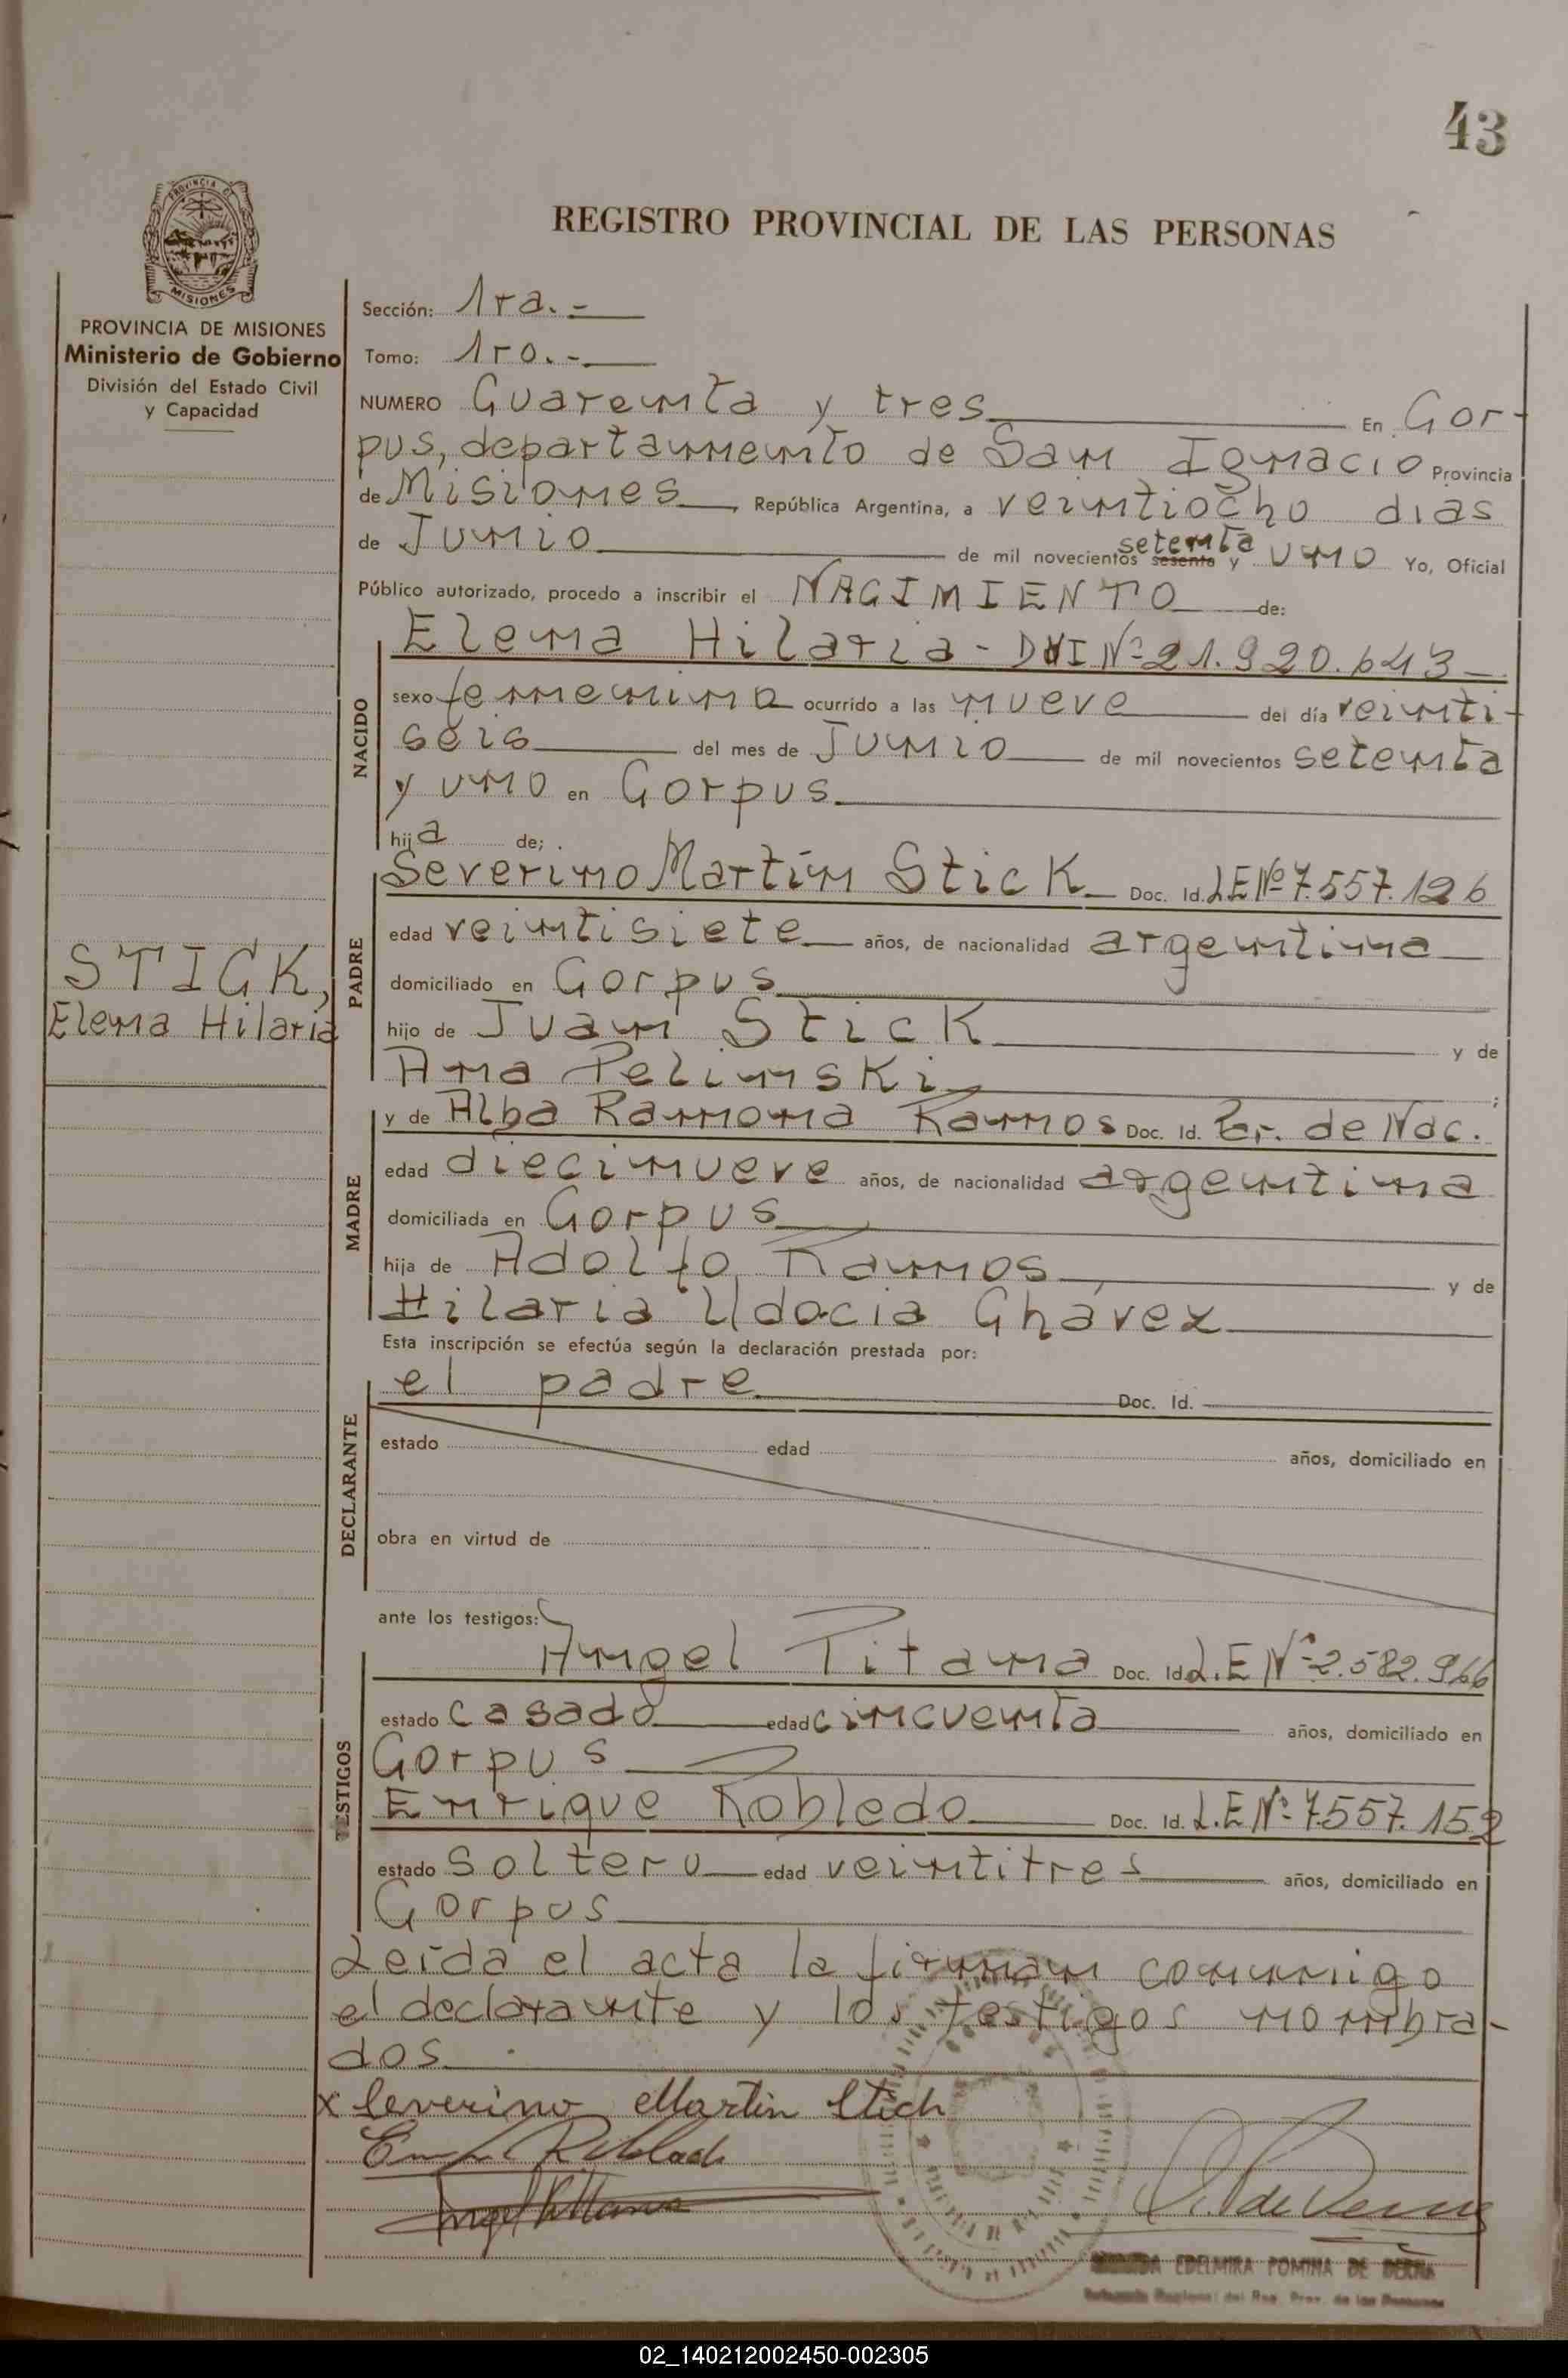 43
REGISTRO PROVINCIAL DE LAS PERSONAS
PROVINCIA DE MISIONES
Ministerio de Gobierno
División del Estado Civil
y Capacidad
Sección: 1ra.-
Tomo: 1ro.-
NUMERO Cuarenta y tres En Cor-
pus, departamento de San Ignacio Provincia
de Misiones, República Argentina, a veintiocho dias
de Junio de mil novecientos sesenta setenta y uno Yo, Oficial
Público autorizado, procedo a inscribir el NACIMIENTO de:
Elena Hilaria - DNI Nº 21.920.643
NACIDO
sexo femenina ocurrido a las nueve del día veinti-
seis del mes de Junio de mil novecientos setenta
y uno en Corpus
hija de;
STICK,
Elena Hilaria
PADRE
Severino Martín Stick Doc. Id. L.E Nº 7.557.126
edad veintisiete años, de nacionalidad argentina
domiciliado en Corpus
hijo de Juan Stick y de
Ana Pelinski ;
MADRE
y de Alba Ramona Ramos Doc. Id. Par. de Nac.
edad diecinueve años, de nacionalidad argentina
domiciliada en Corpus
hija de Adolfo Ramos y de
Hilaria Udocia Chávez
Esta inscripción se efectúa según la declaración prestada por:
DECLARANTE
el padre Doc. Id.
estado edad años, domiciliado en
obra en virtud de
ante los testigos:
TESTIGOS
Angel Pitana Doc. Id. L.E Nº 2.582.966
estado casado edad cincuenta años, domiciliado en
Corpus
Enrique Robledo Doc. Id. L.E Nº 7.557.152
estado soltero edad veintitres años, domiciliado en
Corpus
Leída el acta la firman conmigo
el declarante y los testigos nombra-
dos
x Severino Martin Stich
EDELMIRA POMINA DE
Regional del Reg. Prov. de las Personas
02_140212002450-002305